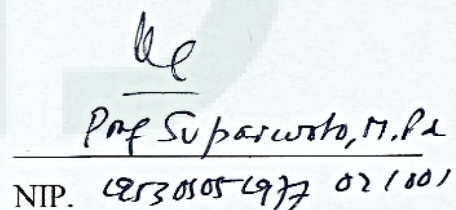 Prof Suparwoto, M.Pd
NIP. 19530505 1977 02 1 001